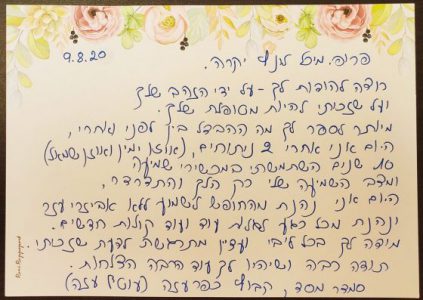 9.8.20
פרופ. מיכל לונץ יקרה.
רוצה להודות לך - על ידי הזהב שלך
ועל שזכיתי להיות מטופלת שלך.
מיותר לספר לך מה ההבדל בין לפני ואחרי,
היום אני אחרי 2 ניתוחים, (אוזן ימין ואוזן שמאל)
10 שנים השתמשתי במכשירי שמיעה
ומצב השמיעה שלי רק הלך והתדרדר,
היום אני נהנת מהחופש לשמוע ללא אביזרי עזר
ונהנת מכל רגע לגלות עוד ועוד קולות חדשים.
מודה לך בכל ליבי ועדיין מתרגשת לדעת שזכיתי.
תודה רבה ושיהיו לך עוד הרבה הצלחות.
סנדר מסד, קבוץ כפר עזה (עוטף עזה)